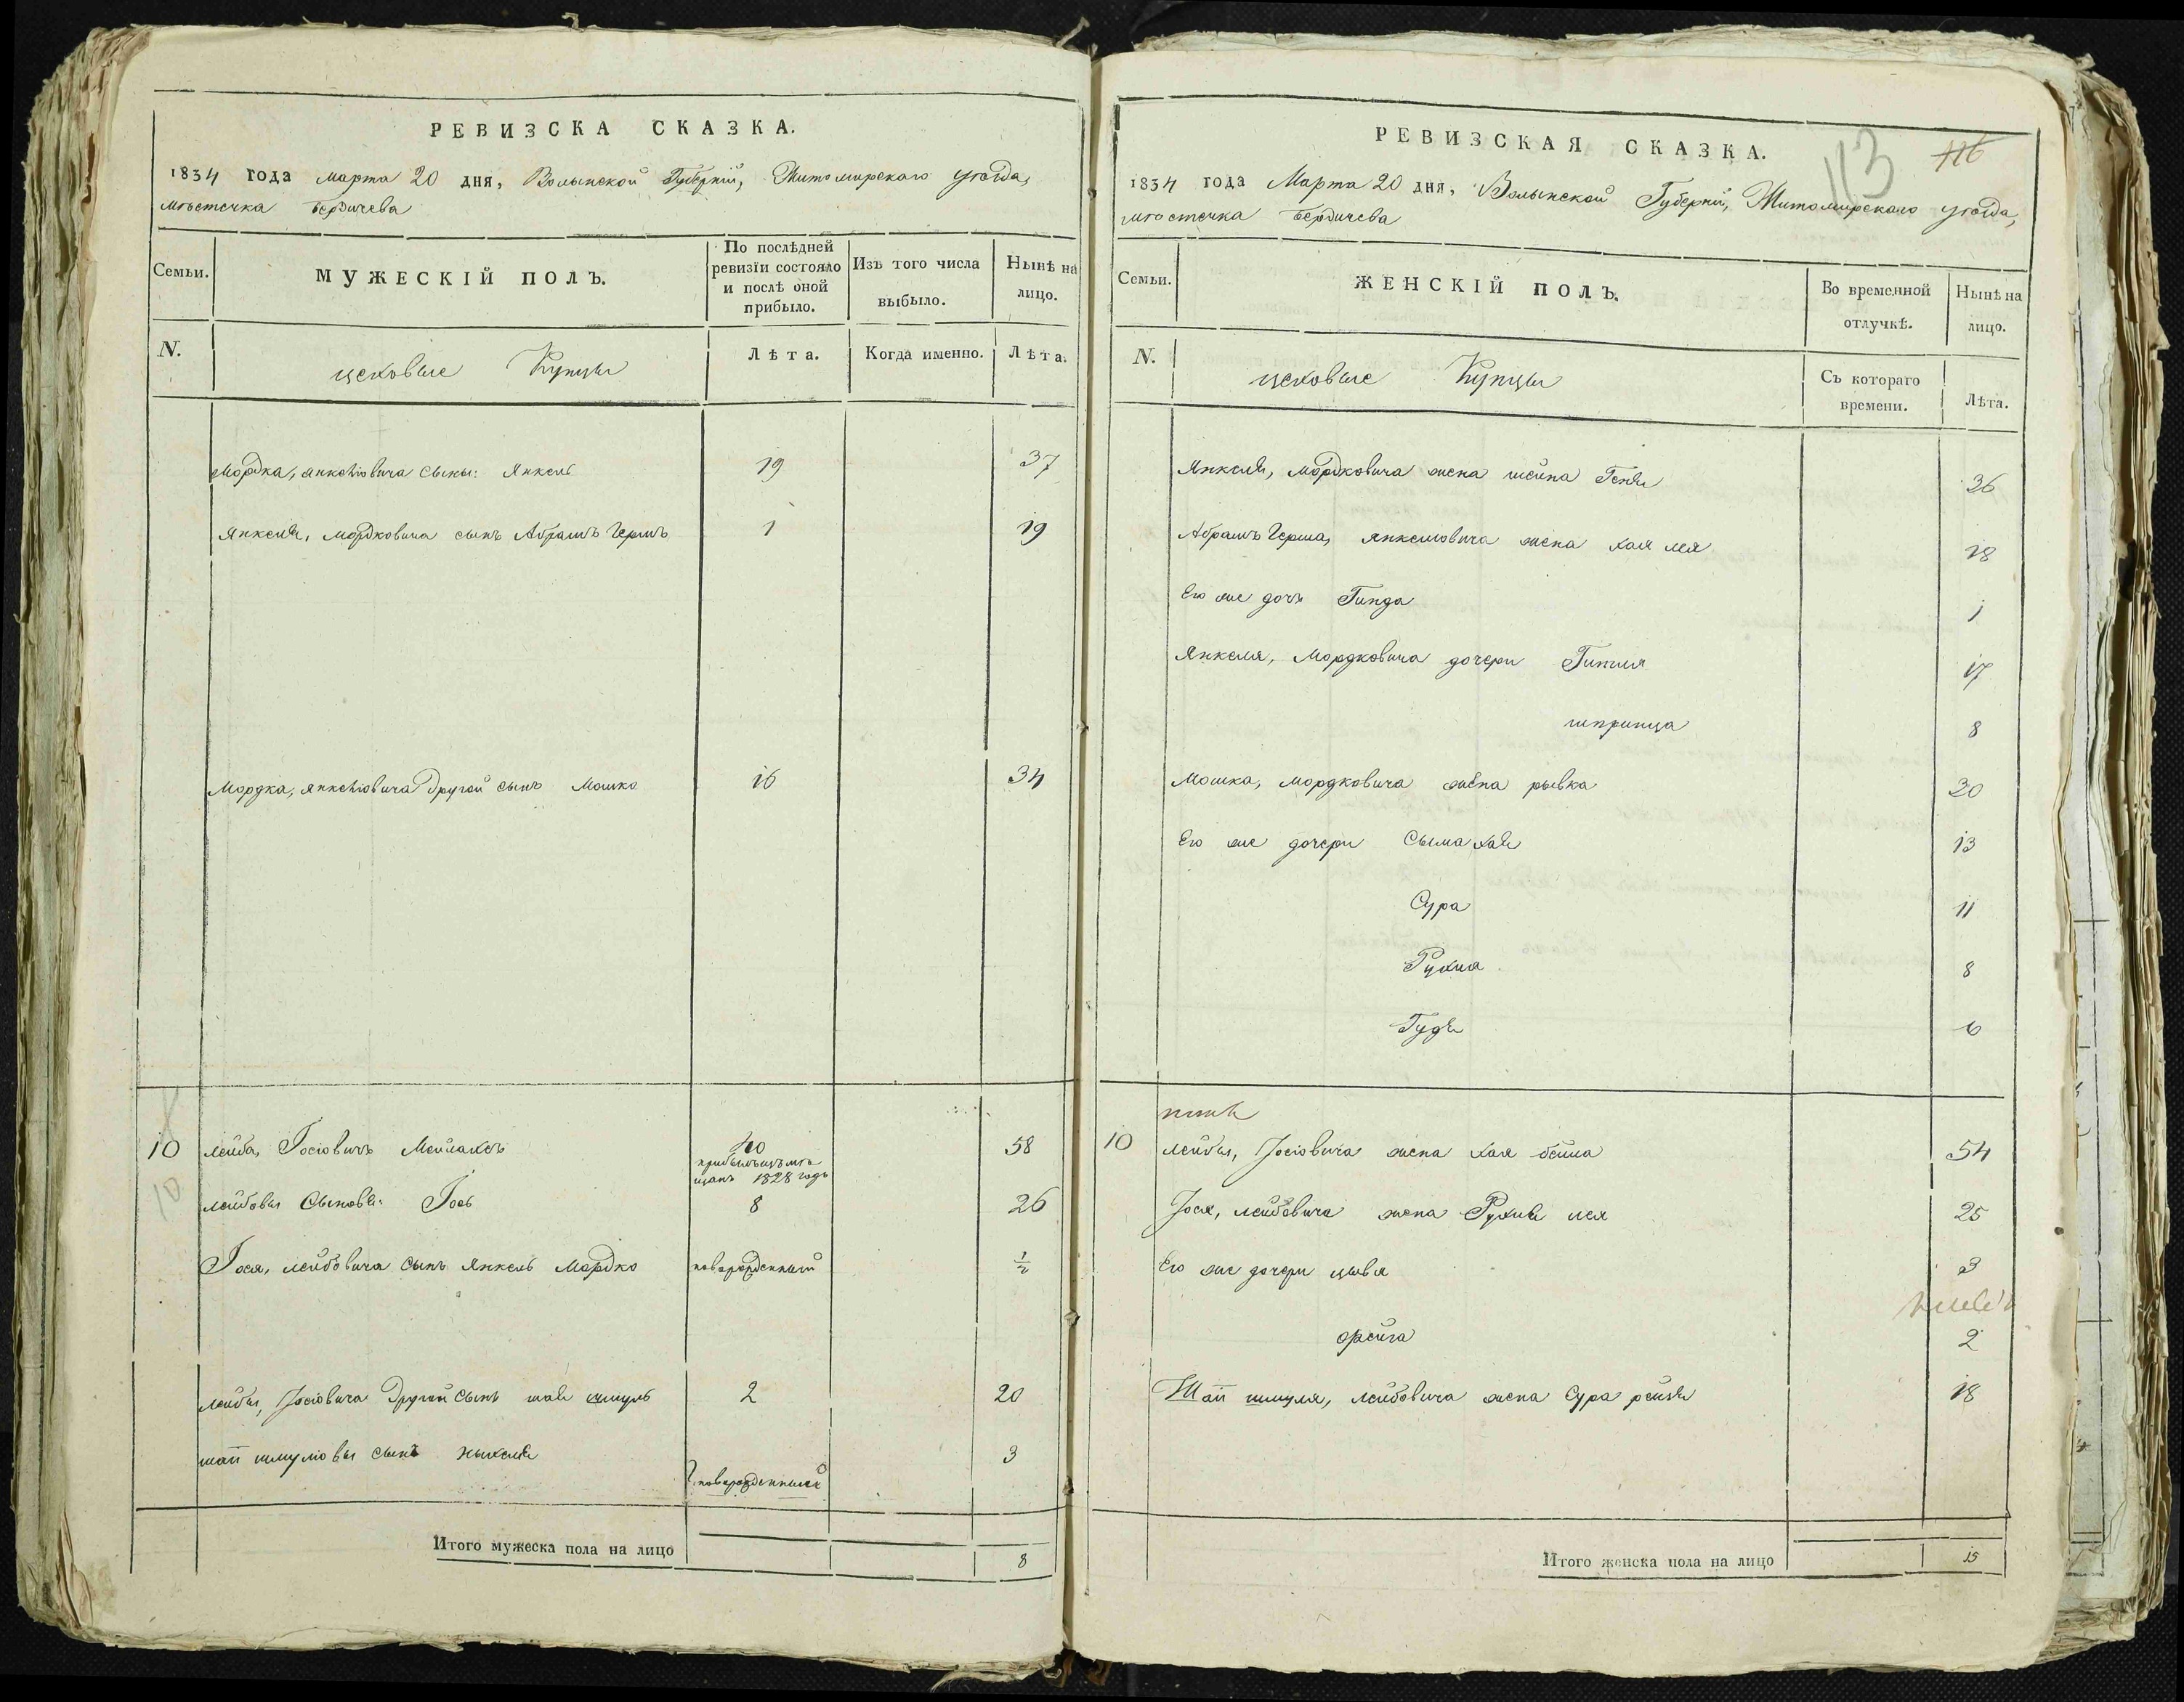 РЕВИЗСКА СКАЗКА.
1834 года марта 20 дня, Волынской Губерніи, Житомирскаго уѣзда,
мѣстечка Бердичева
Семьи.
МУЖЕСКІЙ ПОЛЪ.
По послѣдней
ревизіи состояло
и послѣ оной
прибыло.
Изъ того числа
выбыло.
Нынѣ на
лицо.
N.
цеховые Купцы
Лѣта.
Когда именно.
Лѣта.
Мордка, Янкеліовича сыны: Янкель 19 37
Янкеля, Мордковича сынъ Абрамъ Гершъ 1 19
Мордка, Янкеліовича другой сынъ Мошко 16 34
10 Лейба, Іосіовичъ 40 58
1828 годъ
10
Лейбовы Сыновья: Іось 8 26
Іося, Лейбовича сынъ Янкель Мордко новорожденный ½
Лейбы, Іосіовича другой сынъ Шая Шмуль 2 20
Шаи Шмуліовы сынъ 3
новорожденный
Итого мужеска пола на лицо 8
РЕВИЗСКАЯ СКАЗКА.
113
116
1834 года Марта 20 дня, Волынской Губерніи, Житомирскаго уѣзда,
мѣстечка Бердичева
Семьи.
ЖЕНСКІЙ ПОЛЪ.
Во временной
отлучкѣ.
Нынѣ на
лицо.
N.
цеховые Купцы
Съ котораго
времени.
Лѣта.
Янкеля, Мордковича жена Шейна Геня 36
Абрамъ Герша, Янкеліовича жена Хая Лея 18
Его же дочь Гинда 1
Янкеля, Мордковича дочери 17
Шпринца 8
Мошка, Мордковича жена Рывка 30
Его же дочери Сыма Хая 13
Сура 11
Рухля 8
Гудя 6
10 Лейбы, Іосіовича жена Хая Бейла 54
Іося, Лейбовича жена Рухля Лея 25
Его же дочери Цывья 3
Фрейга 2
Шаи Шмуля, Лейбовича жена Сура Рейзя 18
Итого женска пола на лицо 15